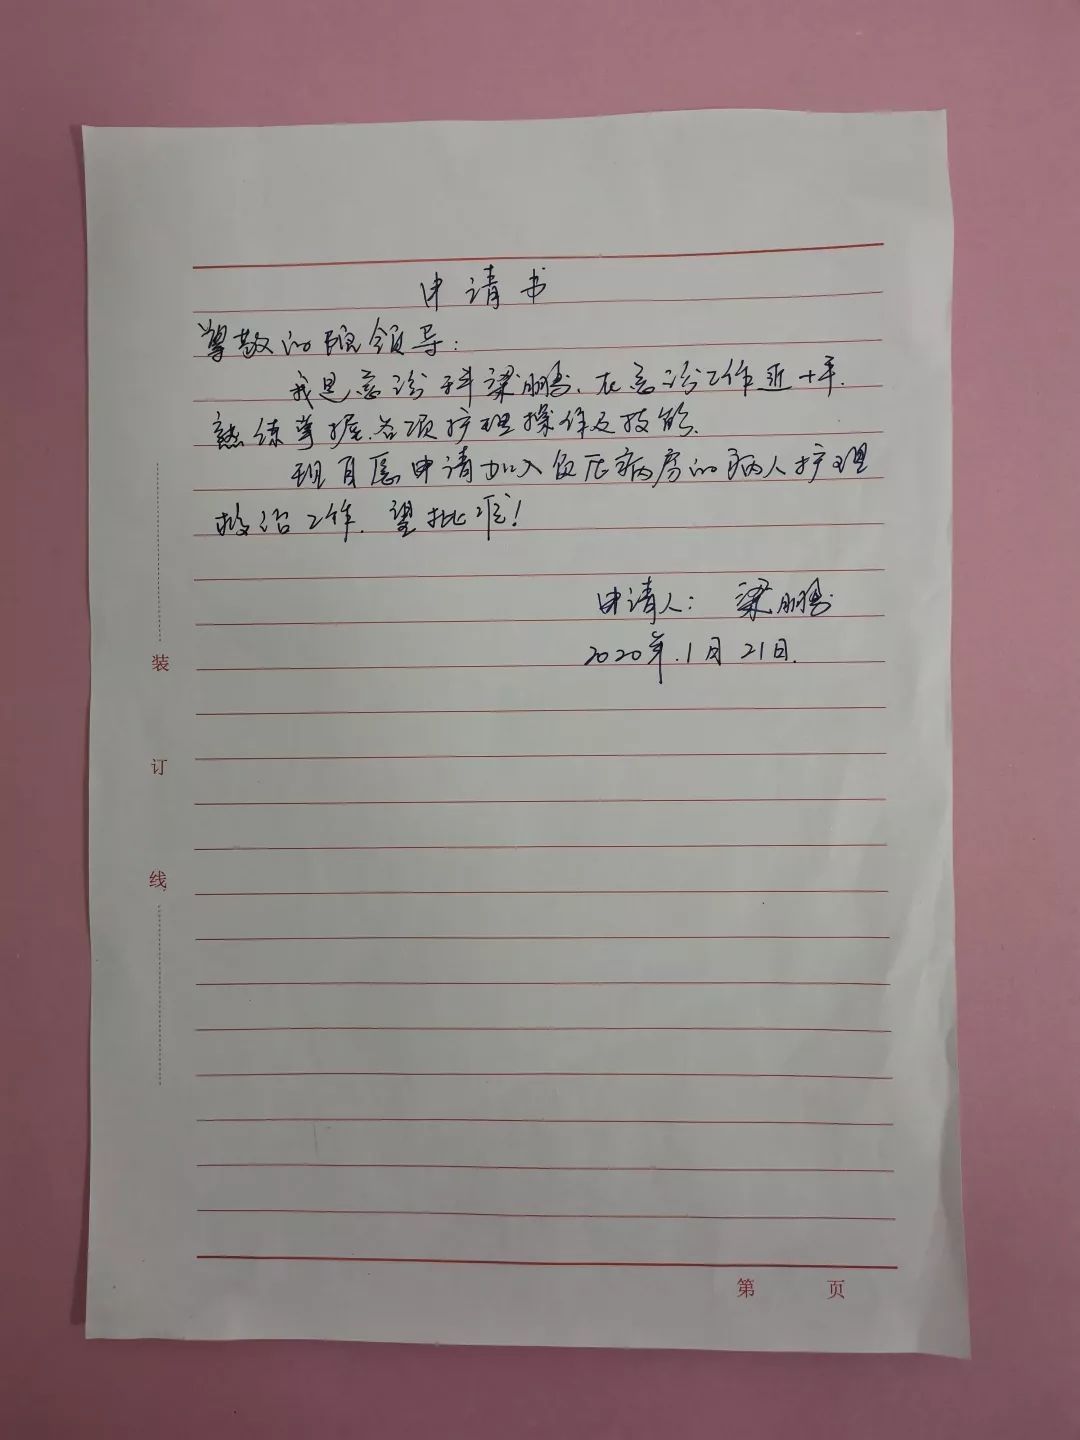 申请书
尊敬的院领导:
我是急诊科梁鹏,在急诊工作近十年.
熟练掌握各项护理操作及技能.
现自愿申请加入负压病房的病人护理
救治工作.望批准!
申请人: 梁鹏
2020年.1月21日.
装
订
线
第 页